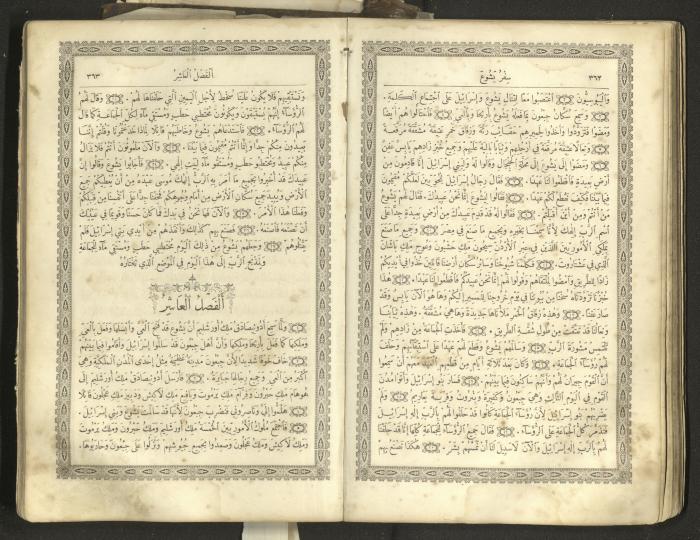 سِفْرُ يَشُوعَ
٣٦٢
وَالْيَبُوسِيُّونَ اجْتَمَعُوا مَعًا لِقِتَالِ يَشُوعَ وَإِسْرَائِيلَ عَلَى اجْتِمَاعِ الْكَلِمَةِ.
وَسَمِعَ سُكَّانُ جِبْعُونَ بِمَا فَعَلَهُ يَشُوعُ بِأَرِيحَا وَبِالْعَيِّ فَاحْتَالُوا هُمْ أَيْضًا
وَمَضَوْا فَتَزَوَّدُوا وَأَخَذُوا لِحَمِيرِهِمْ
وَمَضَوْا إِلَى يَشُوعَ إِلَى مَحَلَّةِ الْجِلْجَالِ وَقَالُوا لَهُ وَلِبَنِي إِسْرَائِيلَ إِنَّا قَادِمُونَ مِنْ
أَرْضٍ بَعِيدَةٍ فَاقْطَعُوا لَنَا عَهْدًا. فَقَالَ رِجَالُ إِسْرَائِيلَ لِلْحِوِّيِّينَ لَعَلَّكُمْ مُقِيمُونَ
فِيمَا بَيْنَنَا فَكَيْفَ نَقْطَعُ لَكُمْ عَهْدًا. فَقَالُوا لِيَشُوعَ إِنَّا نَحْنُ عَبِيدُكَ. فَقَالَ لَهُمْ يَشُوعُ
مَنْ أَنْتُمْ وَمِنْ أَيْنَ أَقْبَلْتُمْ. فَقَالُوا لَهُ قَدْ قَدِمَ عَبِيدُكَ مِنْ أَرْضٍ بَعِيدَةٍ جِدًّا عَلَى
اسْمِ الرَّبِّ إِلٰهِكَ لِأَنَّا سَمِعْنَا بِخَبَرِهِ وَبِجَمِيعِ مَا صَنَعَ فِي مِصْرَ وَجَمِيعِ مَا صَنَعَ
بِمَلِكَيِ الْأَمُورِيِّينَ اللَّذَيْنِ فِي عِبْرِ الْأُرْدُنِّ سِيحُونَ مَلِكِ حَشْبُونَ وَعُوجَ مَلِكِ بَاشَانَ
الَّذِي فِي عَشْتَارُوتَ. فَكَلَّمَنَا شُيُوخُنَا وَسَائِرُ سُكَّانِ أَرْضِنَا قَائِلِينَ خُذُوا فِي أَيْدِيكُمْ
زَادًا لِلطَّرِيقِ وَامْضُوا لِلِقَائِهِمْ وَقُولُوا لَهُمْ إِنَّا نَحْنُ عَبِيدُكُمْ فَاقْطَعُوا لَنَا عَهْدًا.
وَهٰذِهِ زِقَاقُ الْخَمْرِ مَلَأْنَاهَا جَدِيدَةً وَهَا هِيَ مُتَشَقِّقَةٌ. وَهٰذِهِ ثِيَابُنَا
وَنِعَالُنَا قَدْ مِنْ طُولِ مَشَقَّةِ الطَّرِيقِ. فَأَخَذَتِ الْجَمَاعَةُ مِنْ زَادِهِمْ وَلَمْ
وَسَالَمَهُمْ يَشُوعُ وَقَطَعَ لَهُمْ عَهْدًا عَلَى اسْتِبْقَائِهِمْ وَحَلَفَ
لَهُمْ رُؤَسَاءُ الْجَمَاعَةِ. وَكَانَ بَعْدَ ثَلَاثَةِ أَيَّامٍ مِنْ قَطْعِهِمِ الْعَهْدَ مَعَهُمْ أَنْ سَمِعُوا
أَنَّ الْقَوْمَ جِيرَانٌ لَهُمْ وَأَنَّهُمْ سَاكِنُونَ فِيمَا بَيْنَهُمْ. فَسَارَ بَنُو إِسْرَائِيلَ وَأَتَوْا مُدُنَ
الْقَوْمِ فِي الْيَوْمِ الثَّالِثِ وَهِيَ جِبْعُونُ وَكَفِيرَةُ وَبَئِيرُوتُ وَقَرْيَةُ يَعَارِيمَ وَلَمْ
يَضْرِبْهُمْ بَنُو إِسْرَائِيلَ لِأَنَّ رُؤَسَاءَ الْجَمَاعَةِ كَانُوا قَدْ حَلَفُوا لَهُمْ بِالرَّبِّ إِلٰهِ إِسْرَائِيلَ
كُلُّ الْجَمَاعَةِ عَلَى الرُّؤَسَاءِ. فَقَالَ جَمِيعُ الرُّؤَسَاءِ لِكُلِّ الْجَمَاعَةِ إِنَّا قَدْ حَلَفْنَا
لَهُمْ بِالرَّبِّ إِلٰهِ إِسْرَائِيلَ وَالْآنَ لَا سَبِيلَ لَنَا أَنْ نَمَسَّهُمْ بِشَرٍّ. هٰكَذَا نَصْنَعُ بِهِمْ
اَلْفَصْلُ الْعَاشِرُ
٣٦٣
وَنَسْتَبْقِيهِمْ فَلَا يَكُونُ عَلَيْنَا سَخَطٌ لِأَجْلِ الْيَمِينِ الَّتِي حَلَفْنَاهَا لَهُمْ. وَقَالَ لَهُمُ
الرُّؤَسَاءُ إِنَّهُمْ يُسْتَبْقَوْنَ وَيَكُونُونَ مُحْتَطِبِي حَطَبٍ وَمُسْتَقِي مَاءٍ لِكُلِّ الْجَمَاعَةِ كَمَا قَالَ
لَهُمُ الرُّؤَسَاءُ. فَاسْتَدْعَاهُمْ يَشُوعُ وَخَاطَبَهُمْ قَائِلًا لِمَاذَا خَدَعْتُمُونَا وَقُلْتُمْ إِنَّنَا
بَعِيدُونَ مِنْكُمْ جِدًّا وَإِنَّمَا أَنْتُمْ مُقِيمُونَ فِيمَا بَيْنَنَا. وَالْآنَ مَلْعُونُونَ أَنْتُمْ فَلَا يَزَالُ
مِنْكُمْ عَبِيدٌ وَمُحْتَطِبُو حَطَبٍ وَمُسْتَقُو مَاءٍ لِبَيْتِ إِلٰهِي. فَأَجَابُوا يَشُوعَ وَقَالُوا إِنَّ
عَبِيدَكَ قَدْ أُخْبِرُوا بِجَمِيعِ مَا أَمَرَ بِهِ الرَّبُّ إِلٰهُكَ مُوسَى عَبْدَهُ مِنْ أَنْ يُعْطِيَكُمْ جَمِيعَ
الْأَرْضِ وَيُبِيدَ جَمِيعَ سُكَّانِ الْأَرْضِ مِنْ أَمَامِ وُجُوهِكُمْ فَخِفْنَا جِدًّا عَلَى أَنْفُسِنَا مِنْ قِبَلِكُمْ
وَفَعَلْنَا هٰذَا الْأَمْرَ. وَالْآنَ فَهَا نَحْنُ فِي يَدِكَ فَمَا كَانَ حَسَنًا وَقَوِيمًا فِي عَيْنَيْكَ
أَنْ تَصْنَعَهُ فَاصْنَعْهُ. فَصَنَعَ بِهِمْ كَذٰلِكَ وَأَنْقَذَهُمْ مِنْ أَيْدِي بَنِي إِسْرَائِيلَ فَلَمْ
يَقْتُلُوهُمْ وَجَعَلَهُمْ يَشُوعُ مِنْ ذٰلِكَ الْيَوْمِ مُحْتَطِبِي حَطَبٍ وَمُسْتَقِي مَاءٍ لِلْجَمَاعَةِ
وَلِمَذْبَحِ الرَّبِّ إِلَى هٰذَا الْيَوْمِ فِي الْمَوْضِعِ الَّذِي تَخْتَارُهُ
اَلْفَصْلُ الْعَاشِرُ
وَلَمَّا سَمِعَ أَدُونِيصَادَقُ مَلِكُ أُورَشَلِيمَ أَنَّ يَشُوعَ قَدْ فَتَحَ الْعَيَّ وَأَبْسَلَهَا وَفَعَلَ بِالْعَيِّ
وَمَلِكِهَا كَمَا فَعَلَ بِأَرِيحَا وَمَلِكِهَا وَأَنَّ أَهْلَ جِبْعُونَ قَدْ سَالَمُوا إِسْرَائِيلَ وَأَقَامُوا فِيمَا بَيْنَهُمْ
خَافَ خَوْفًا شَدِيدًا لِأَنَّ جِبْعُونَ مَدِينَةٌ عَظِيمَةٌ مِثْلُ إِحْدَى الْمُدُنِ الْمَلَكِيَّةِ وَهِيَ
أَكْبَرُ مِنَ الْعَيِّ وَجَمِيعُ رِجَالِهَا جَبَابِرَةٌ. فَأَرْسَلَ أَدُونِيصَادَقُ مَلِكُ أُورَشَلِيمَ إِلَى
هُوهَامَ مَلِكِ حَبْرُونَ وَفِرْآمَ مَلِكِ يَرْمُوتَ وَيَافِيعَ مَلِكِ لَاكِيشَ وَدَبِيرَ مَلِكِ عَجْلُونَ قَائِلًا
هَلُمُّوا إِلَيَّ وَنَاصِرُونِي فَنَضْرِبَ جِبْعُونَ لِأَنَّهَا قَدْ سَالَمَتْ يَشُوعَ وَبَنِي إِسْرَائِيلَ.
فَاجْتَمَعَ مُلُوكُ الْأَمُورِيِّينَ الْخَمْسَةُ مَلِكُ أُورَشَلِيمَ وَمَلِكُ حَبْرُونَ وَمَلِكُ يَرْمُوتَ
وَمَلِكُ لَاكِيشَ وَمَلِكُ عَجْلُونَ وَصَعِدُوا بِجَمِيعِ جُيُوشِهِمْ وَنَزَلُوا عَلَى جِبْعُونَ وَحَارَبُوهَا.